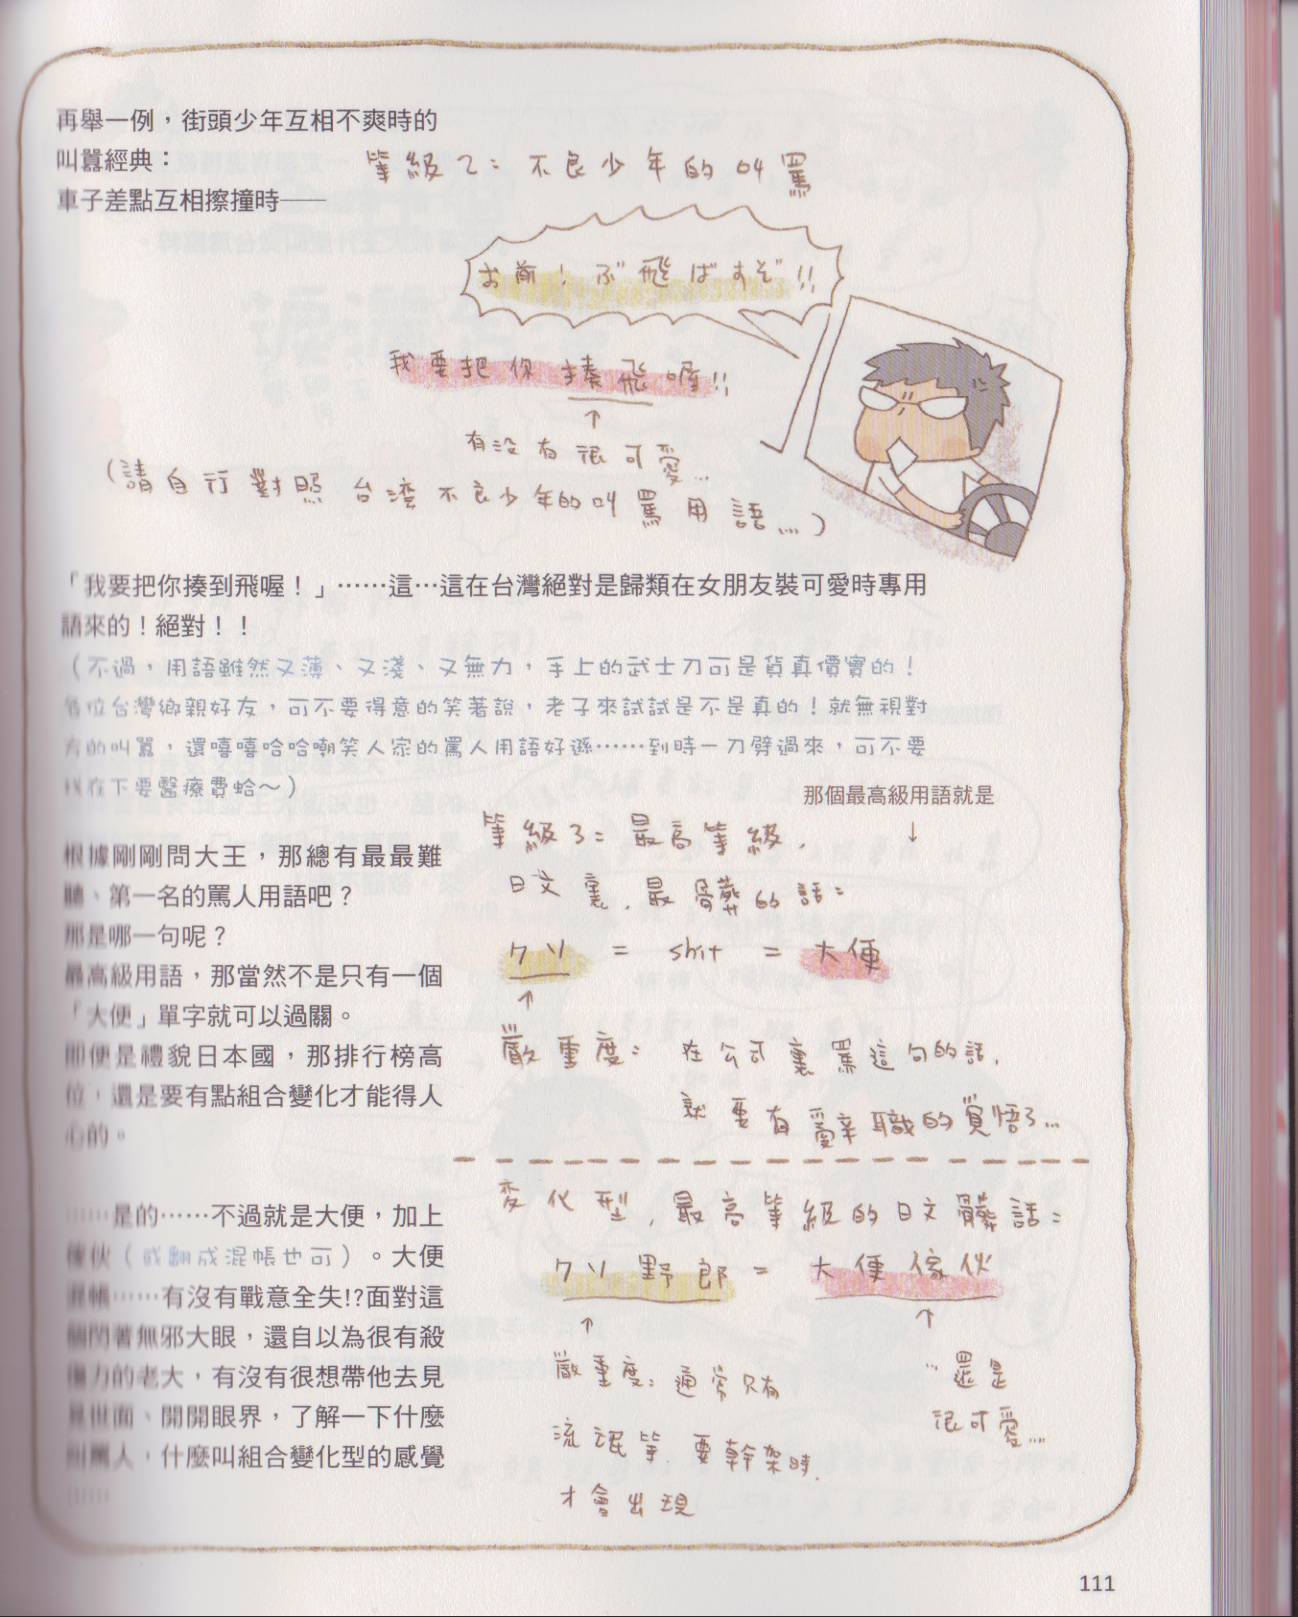 再舉一例，街頭少年互相不爽時的
叫囂經典：
車子差點互相擦撞時——
等級2：不良少年的叫罵
お前！ぶ飛ばすぞ!!
我要把你揍飛喔!!
↑
有沒有很可愛…
(請自行對照台灣不良少年的叫罵用語…)
「我要把你揍到飛喔！」……這…這在台灣絕對是歸類在女朋友裝可愛時專用
語來的！絕對！！
（不過，用語雖然又薄、又淺、又無力，手上的武士刀可是貨真價實的！
各位台灣鄉親好友，可不要得意的笑著說，老子來試試是不是真的！就無視對
方的叫囂，還嘻嘻哈哈嘲笑人家的罵人用語好遜……到時一刀劈過來，可不要
找在下要醫療費蛤～）
根據剛剛問大王，那總有最最難
聽、第一名的罵人用語吧？
那是哪一句呢？
最高級用語，那當然不是只有一個
「大便」單字就可以過關。
即便是禮貌日本國，那排行榜高
位，還是要有點組合變化才能得人
心的。
……是的……不過就是大便，加上
傢伙（或翻成混帳也可）。大便
混帳……有沒有戰意全失!?面對這
個閃著無邪大眼，還自以為很有殺
傷力的老大，有沒有很想帶他去見
見世面、開開眼界，了解一下什麼
叫罵人，什麼叫組合變化型的感覺
……
那個最高級用語就是
↓
等級3：最高等級，
日文裏，最骯髒的話：
クソ = shit = 大便
↑
嚴重度：在公司裏罵這句的話，
就要有愛辭職的覺悟了…
変化型，最高等級的日文髒話：
クソ野郎 = 大便傢伙
↑
嚴重度：通常只有
流氓等，要幹架時，
才會出現
↑
…還是
很可愛…
111